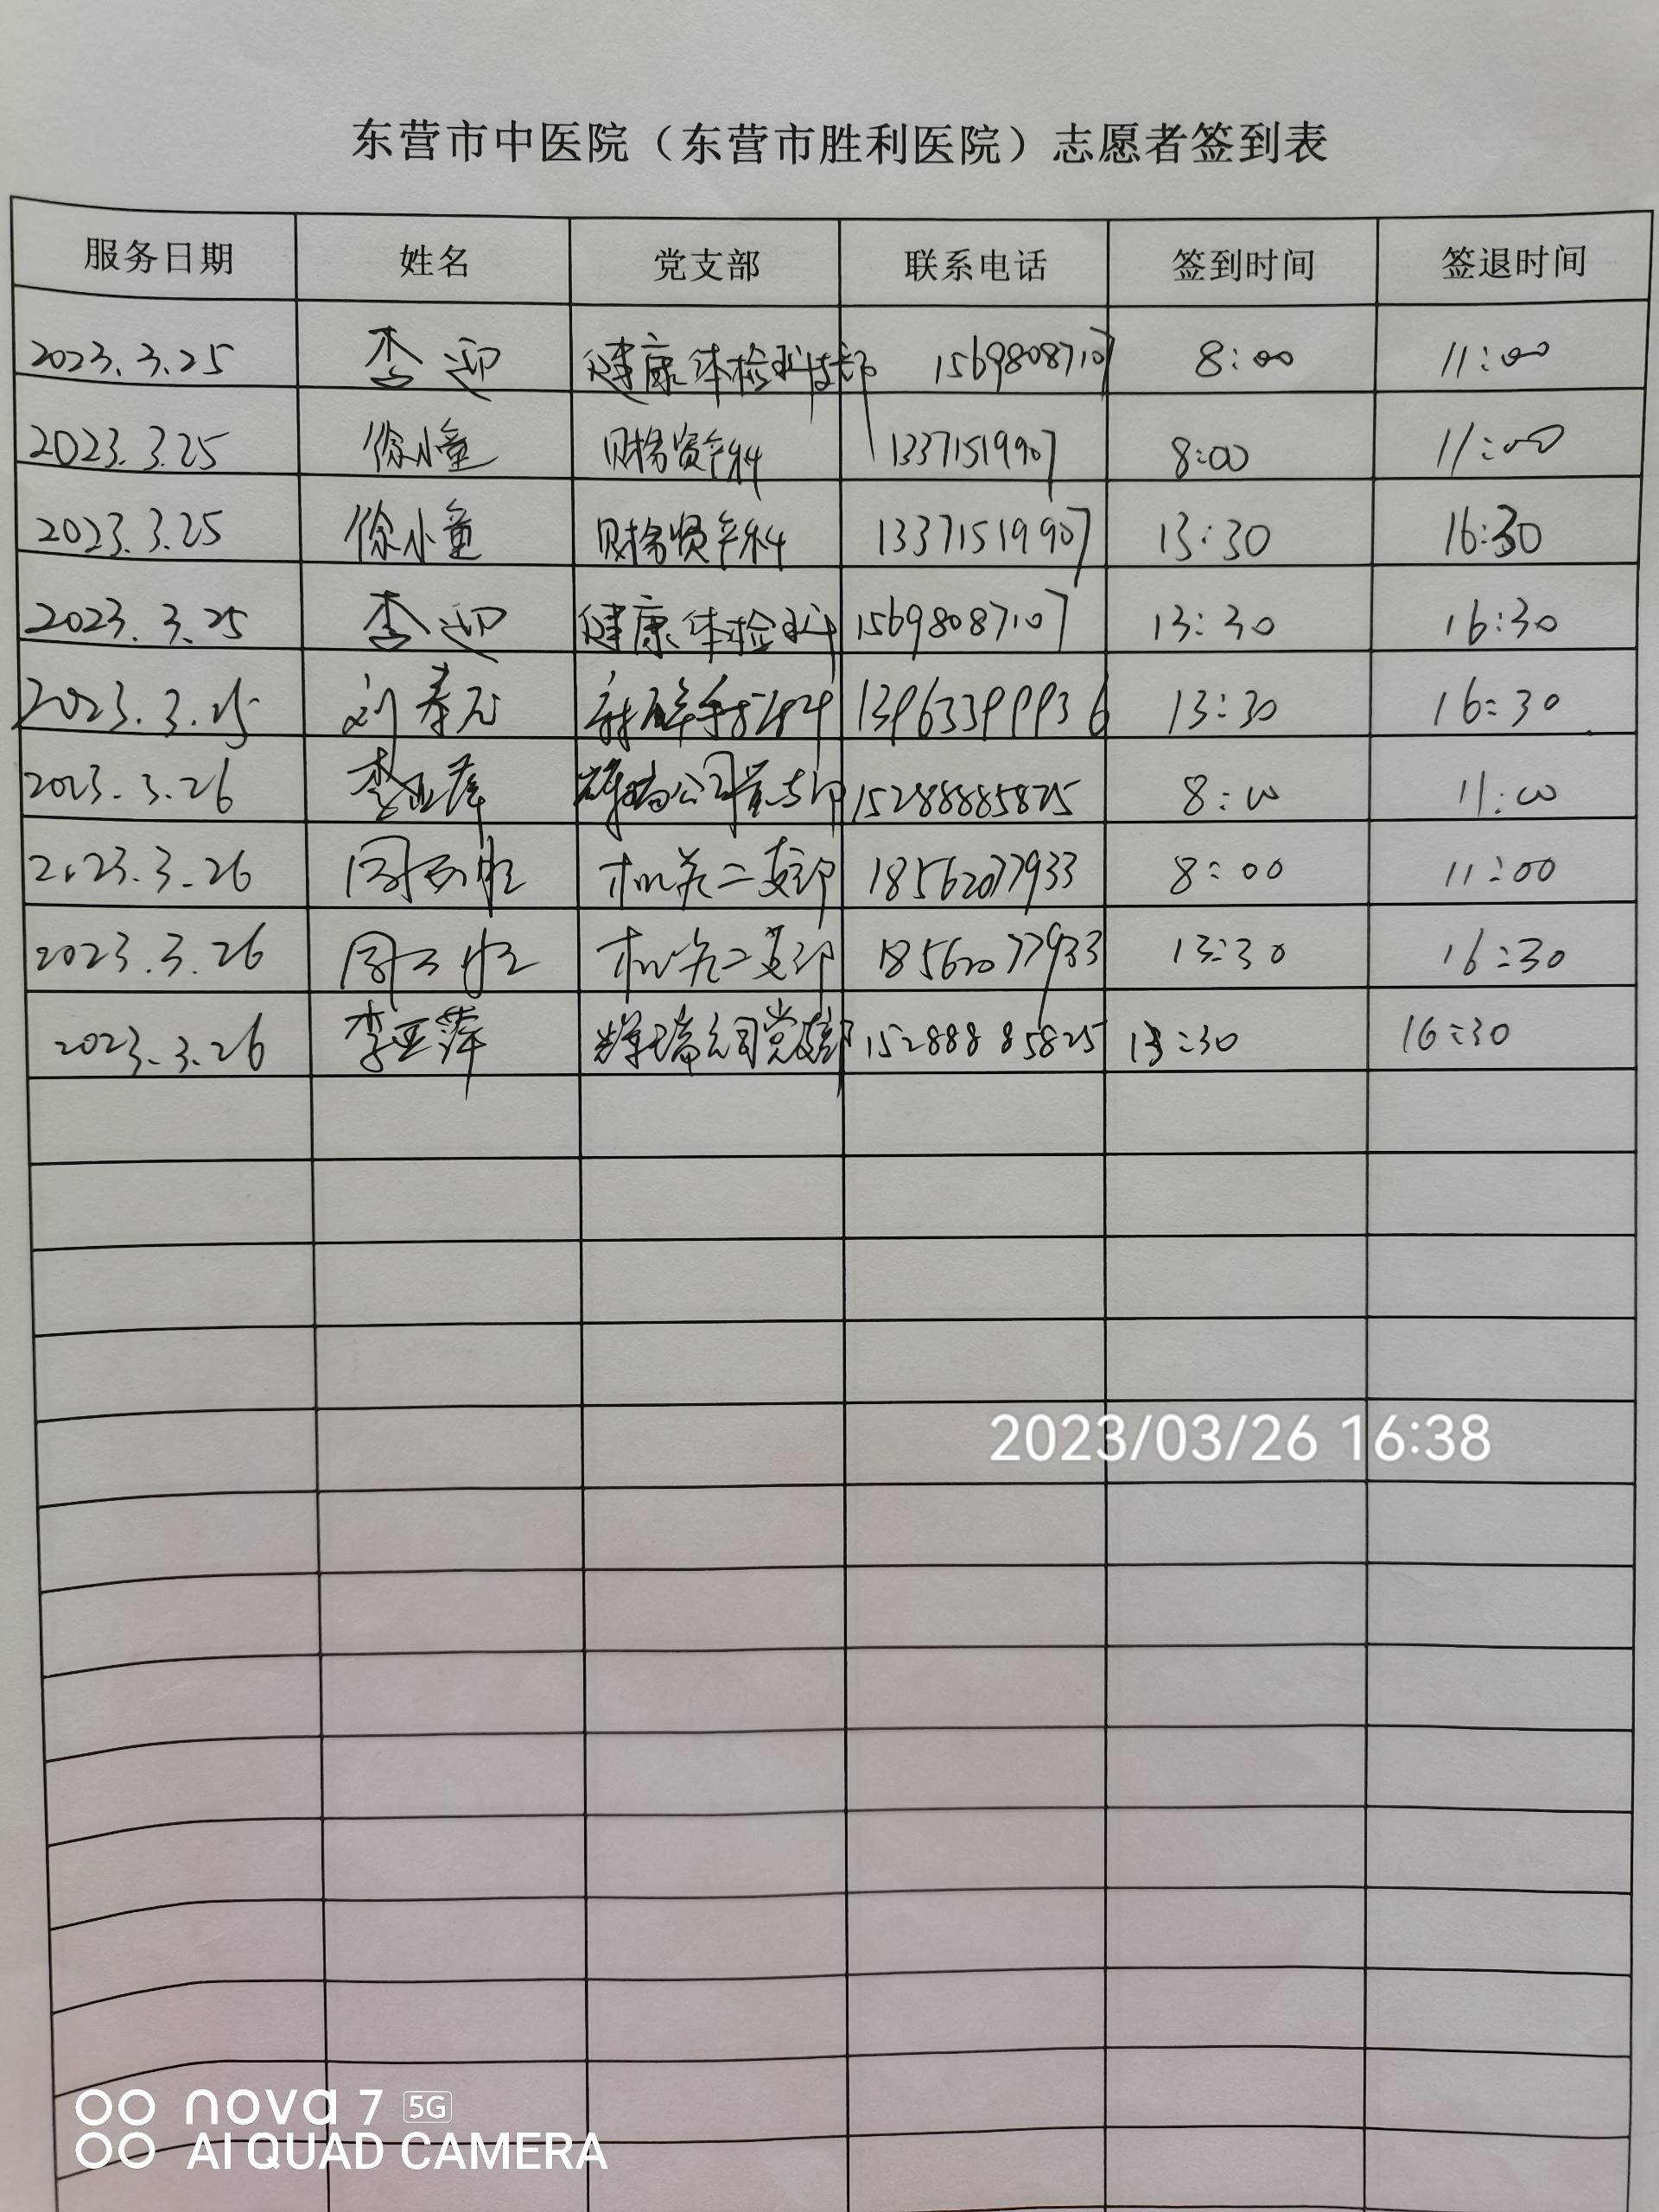 东营市中医院（东营市胜利医院）志愿者签到表
服务日期 姓名 党支部 联系电话 签到时间 签退时间
2023.3.25 李迎 健康体检科支部 15698087107 8:00 11:00
2023.3.25 徐小童 财务资产科 13371519907 8:00 11:00
2023.3.25 徐小童 财务资产科 13371519907 13:30 16:30
2023.3.25 李迎 健康体检科 15698087107 13:30 16:30
2023.3.25 刘 13963399936 13:30 16:30
2023.3.26 李亚萍 辉瑞公司党支部 15288885825 8:00 11:00
2023.3.26 周 机关二支部 18562077933 8:00 11:00
2023.3.26 周 机关二支部 18562077933 13:30 16:30
2023.3.26 李亚萍 辉瑞公司党支部 15288885825 13:30 16:30
2023/03/26 16:38
nova 7 5G
AI QUAD CAMERA